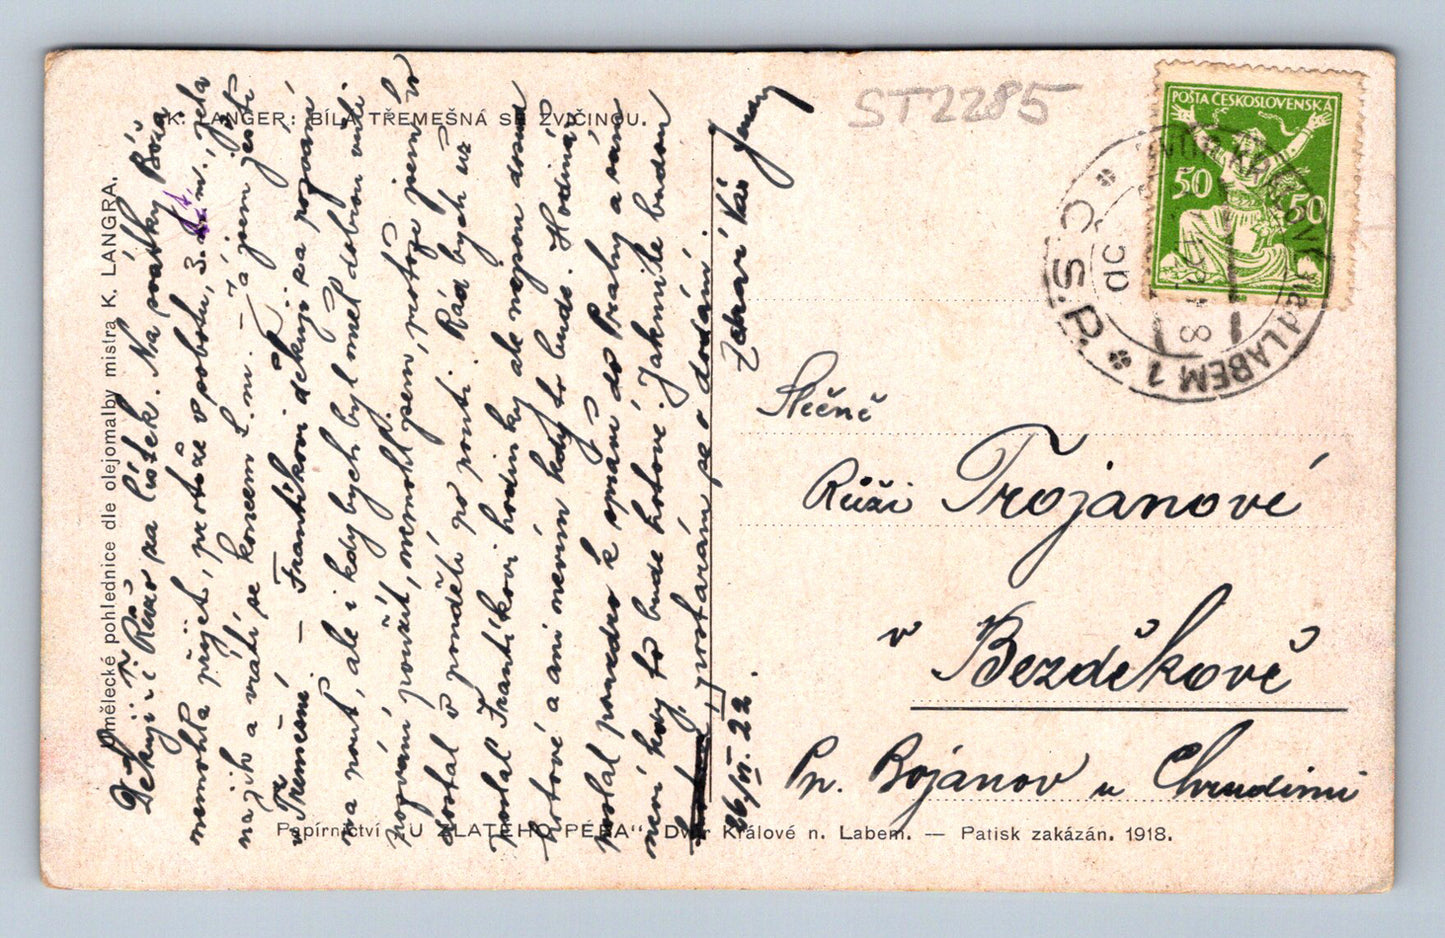 K. LANGER: BÍLÁ TŘEMEŠNÁ SE ZVIČINOU.
ST2285
POŠTA ČESKOSLOVENSKÁ
50 50
DVŮR KRÁLOVÉ nad LABEM 1
Č.S.P.
Umělecké pohlednice dle olejomalby mistra K. LANGRA.
Děkuji Ti Růžo za lístek. Na svátky Boža
nemohla přijet, protože v sobotu, 3. t. m. jela
a vrátí se koncem t. m. – Já jsem ještě
v Třemešné – Frantíkovi děkuji za pozvání
na pouť, ale i kdybych byl měl dobrou vůli
pozvání použít, nemohl jsem, protože jsem ho
dostal v pondělí po pouti. Rád bych už
poslal Frantíkovi hodinky ale nejsou dosud
hotové a ani nevím kdy to bude. Hodinář
poslal pouzdro k spraví do Prahy a sám
neví kdy to bude hotové. Jakmile budou
postarám se o dodání.
Zdraví Vás
26/VI. 22.
Slečně
Růži Trojanové
v Bezděkově
Pp. Bojanov u Chrudimi
Papírnictví „U ZLATÉHO PÉRA“ Dvůr Králové n. Labem. — Patisk zakázán. 1918.